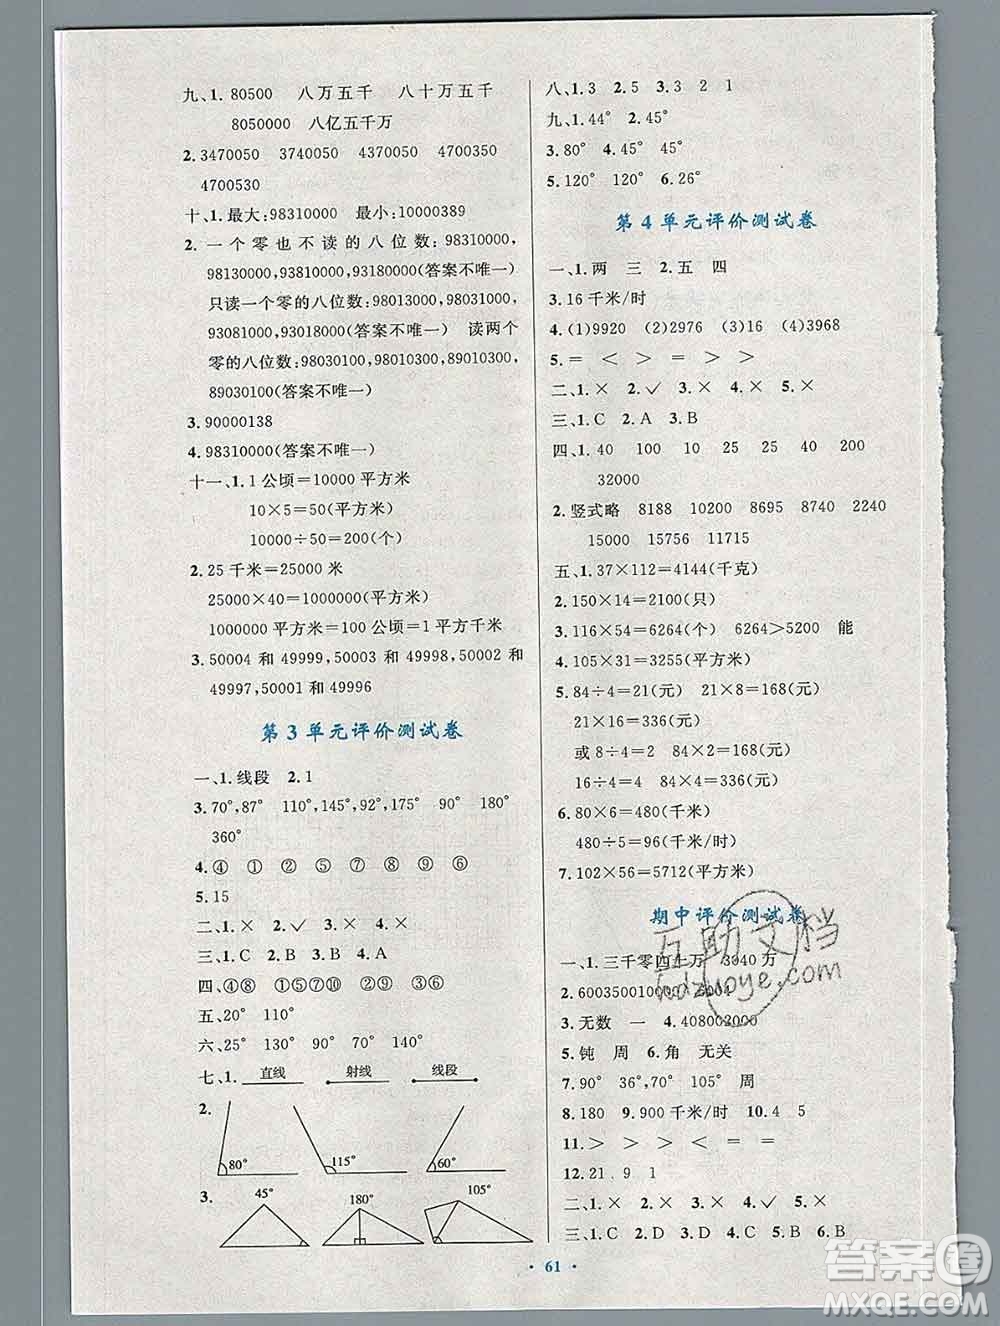 九、1. 80500 八万五千 八十万五千
8050000 八亿五千万
2. 3470050 3740050 4370050 4700350
4700530
十、1. 最大:98310000 最小:10000389
2. 一个零也不读的八位数:98310000,
98130000,93810000,93180000(答案不唯一)
只读一个零的八位数:98013000,98031000,
93081000,93018000(答案不唯一) 读两个
零的八位数:98030100,98010300,89010300,
89030100(答案不唯一)
3. 90000138
4. 98310000(答案不唯一)
十一、1. 1公顷=10000平方米
10×5=50(平方米)
10000÷50=200(个)
2. 25千米=25000米
25000×40=1000000(平方米)
1000000平方米=100公顷=1平方千米
3. 50004和49999,50003和49998,50002和
49997,50001和49996
第3单元评价测试卷
一、1. 线段 2. 1
3. 70°,87° 110°,145°,92°,175° 90° 180°
360°
4. ④ ① ② ⑤ ⑨ ③ ⑥
5. 15
二、1. × 2. √ 3. × 4. × 5. ×
三、1. C 2. B 3. B 4. B 5. A
四、④⑧ ①②⑤⑦⑩ ③⑥⑨
五、20° 110°
六、25° 130° 90° 150° 140°
七、1. 直线 射线 线段
2. 80° 115° 60°
3. 45° 180° 105°
八、1. 3 2. 5 3. 3 2 1
九、1. 44° 2. 45°
3. 80° 4. 45° 45°
5. 120° 120° 6. 26°
第4单元评价测试卷
一、1. 两 三 2. 五 四
3. 16千米/时
4. (1)9920 (2)2976 (3)16 (4)3968
5. = < > = > >
二、1. × 2. √ 3. × 4. × 5. ×
三、1. C 2. A 3. B
四、1. 40 100 10 25 40 200
32000
2. 竖式略 8188 10200 8905 2240
15000 15756 11715
五、1. 37×112=4144(千克)
2. 150×14=2100(只)
3. 116×54=6264(个) 6264>5200 能
4. 105×31=3255(平方米)
5. 84÷4=21(元) 21×8=168(元)
21×16=336(元)
或 8÷4=2 84×2=168(元)
16÷4=4 84×4=336(元)
6. 80×6=480(千米)
480÷5=96(千米/时)
7. 102×56=5712(平方米)
期中评价测试卷
一、1. 三千零四十万 3040万
2. 600350010000 6004
3. 无数 一 4. 408003000
5. 钝 周 6. 角 无关
7. 90° 36°,70° 105° 周
8. 180 9. 900千米/时 10. 4 5
11. > > > < = =
12. 21.9 1
二、1. × 2. × 3. × 4. √ 5. ×
三、1. C 2. D 3. D 4. B 5. B 6. B
· 61 ·
互助文档
hdzuoye.com
答案卷
MXQE.COM